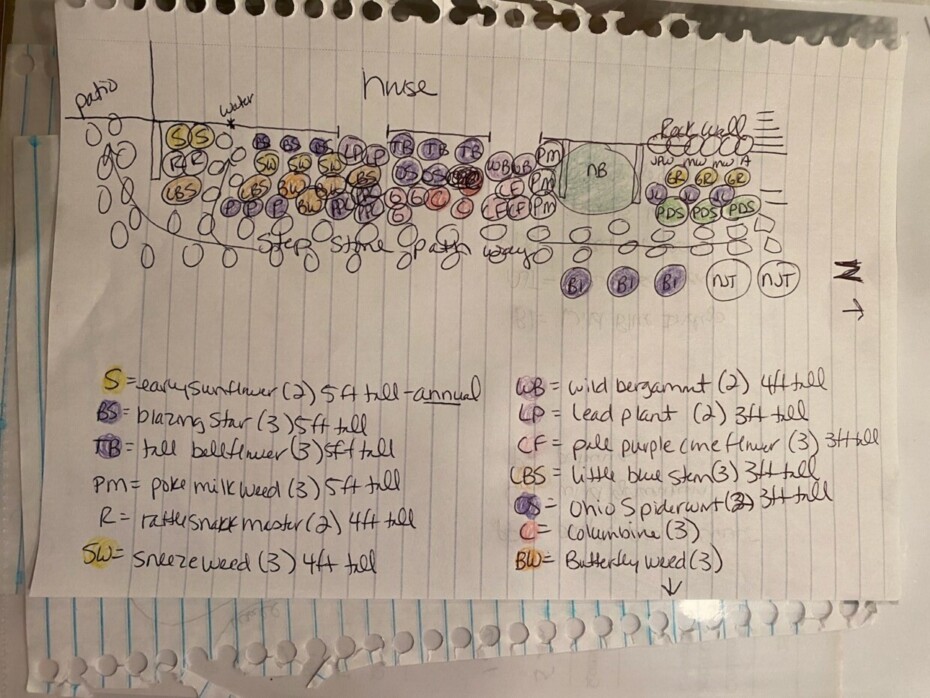 house
patio
water
Rock Wall
S S BS BS BS LP LP TB TB TB WB WB PM NB JRW MW MW A
R R SW SW SW LBS OS OS CF PM GR GR GR
LBS LBS BW BW C CF CF PM PDS PDS PDS
P P P BW
Step Stone path way
BI BI BI NJT NJT
N ↑
S = early sunflower (2) 5ft tall - annual
BS = blazing Star (3) 5ft tall
TB = tall bellflower (3) 5ft tall
PM = poke milkweed (3) 5ft tall
R = rattlesnake master (2) 4ft tall
SW = sneezeweed (3) 4ft tall
WB = wild bergamot (2) 4ft tall
LP = Lead plant (2) 3ft tall
CF = pale purple cone flower (3) 3ft tall
LBS = little blue stem (3) 3ft tall
OS = Ohio Spiderwort (3) 3ft tall
C = columbine (3)
BW = Butterfly weed (3)
↓